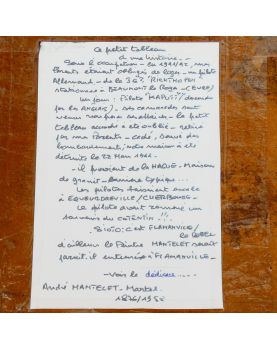 Ce petit tableau
a une histoire.-
Sous l'occupation - en 1941/42, mes
Parents étaient obligés de loger - un pilote
Allemand - de la 3è? "RICHTHOFEN"
stationnée à BEAUMONT le Roger - (EURE)
Un jour: Pilote "KAPUT"!! descendu
par les ANGLAIS) - ses camarades sont
venus prendre ses affaires - le petit
tableau accroché a été oublié -
par mes Parents - car,
bombardements, notre maison a été
détruite le 22 Mai 1944.-
- il provient de la HAGUE - Maisons
de granit - barrière typique...
Les pilotes faisaient escale
à EQUEURDREVILLE/CHERBOURG.-
Le pilote avait ramené un
souvenir du COTENTIN!!!-
SIOTO: C'est FLAMANVILLE/
le ROZEL
d'ailleurs le Peintre MANTELET
serait-il enterré à FLAMANVILLE.-
- Voir la dédicace.....-
André MANTELET-Martel.
1876/1953